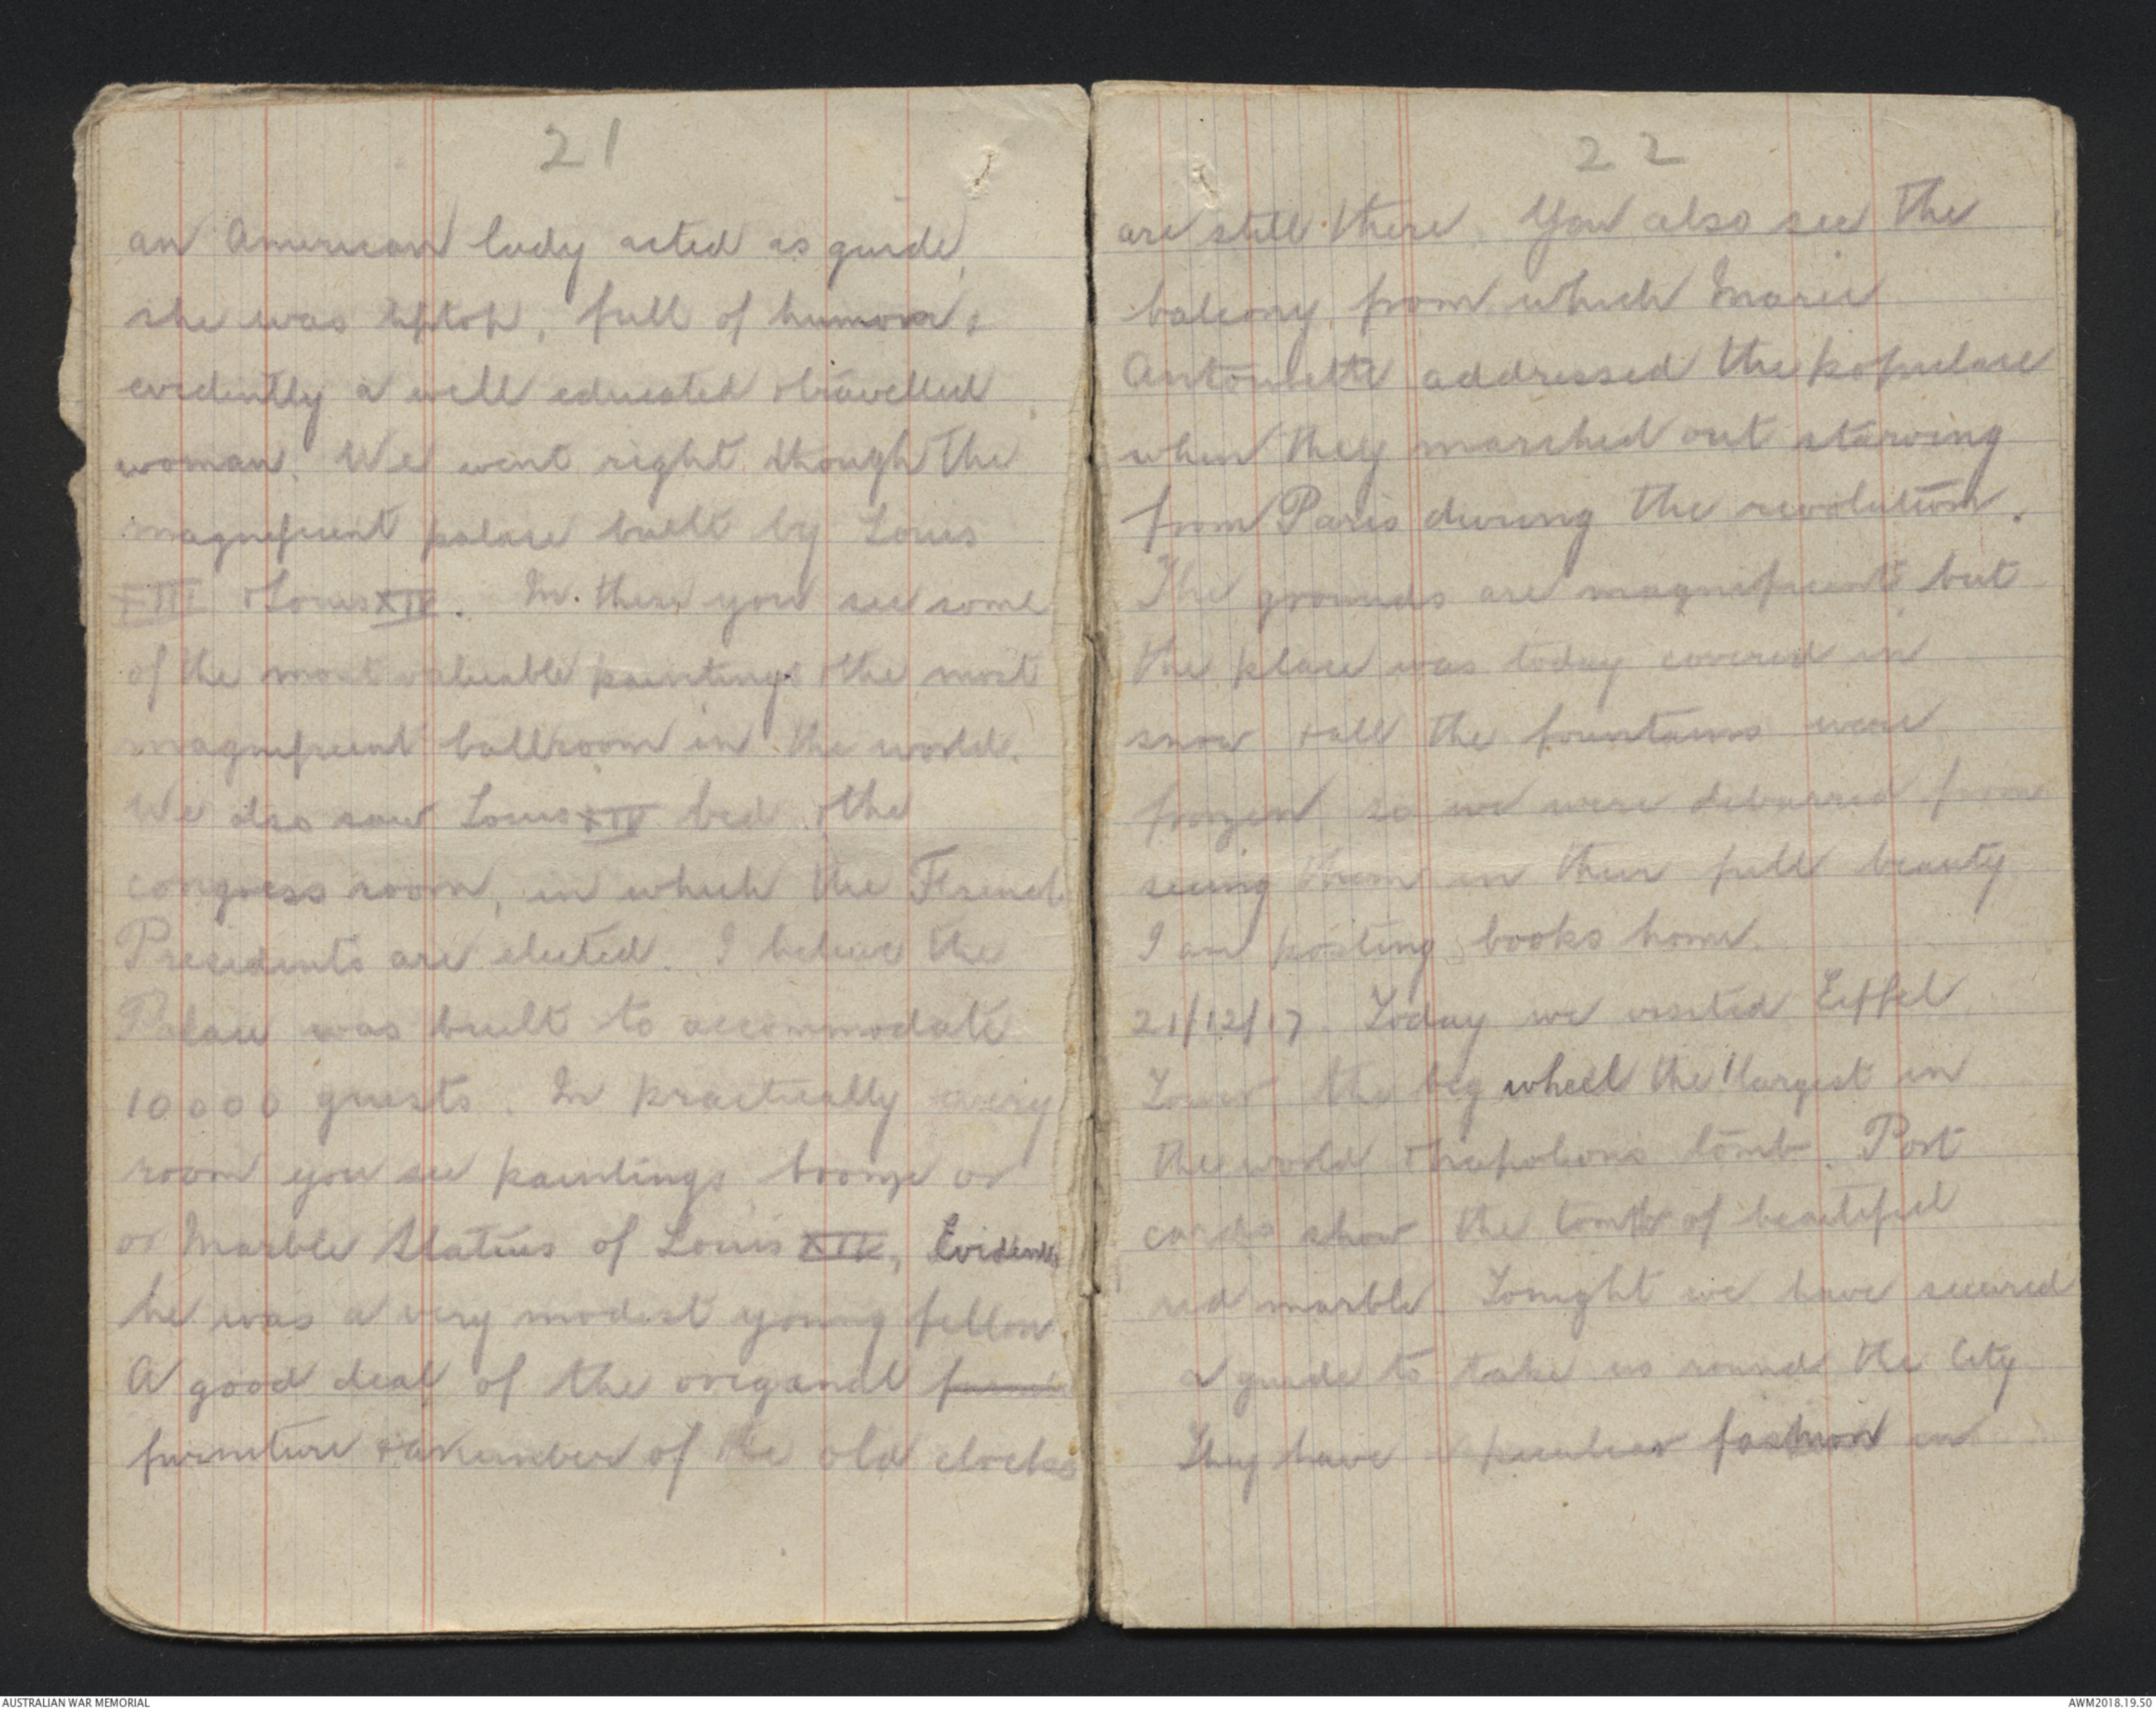 21
an American lady acted as guide,
she was tiptop, full of humour &
evidently a well educated & travelled
woman. We went right though the
magnificent palace built by Louis
XIII & Louis XIV. In there you see some
of the most valuable paintings & the most
magnificent ballroom in the world.
We also saw Louis XIV bed & the
congress room, in which the French
Presidents are elected. I believe the
Palace was built to accommodate
10000 guests. In practically every
room you see paintings bronze or
or Marble Statues of Louis XIV, Evidently
he was a very modest young fellow.
A good deal of the origanal
furniture & a number of the old clocks
22
are still there. You also see the
balcony from which Marie
Antoinette addressed the populace
when they marched out starving
from Paris during the revolution.
The grounds are magnificent but
the place was today covered in
snow & all the fountains were
frozen so we were debarred from
seeing them in their full beauty
I am posting books home.
21/12/17. Today we visited Eiffel
Tower the big wheel the largest in
the world & Napoleons tomb. Post
cards show the tomb of beautiful
red marble. Tonight we have secured
a guide to take us round the City
They have a peculiar fashion in
AUSTRALIAN WAR MEMORIAL
AWM2018.19.50